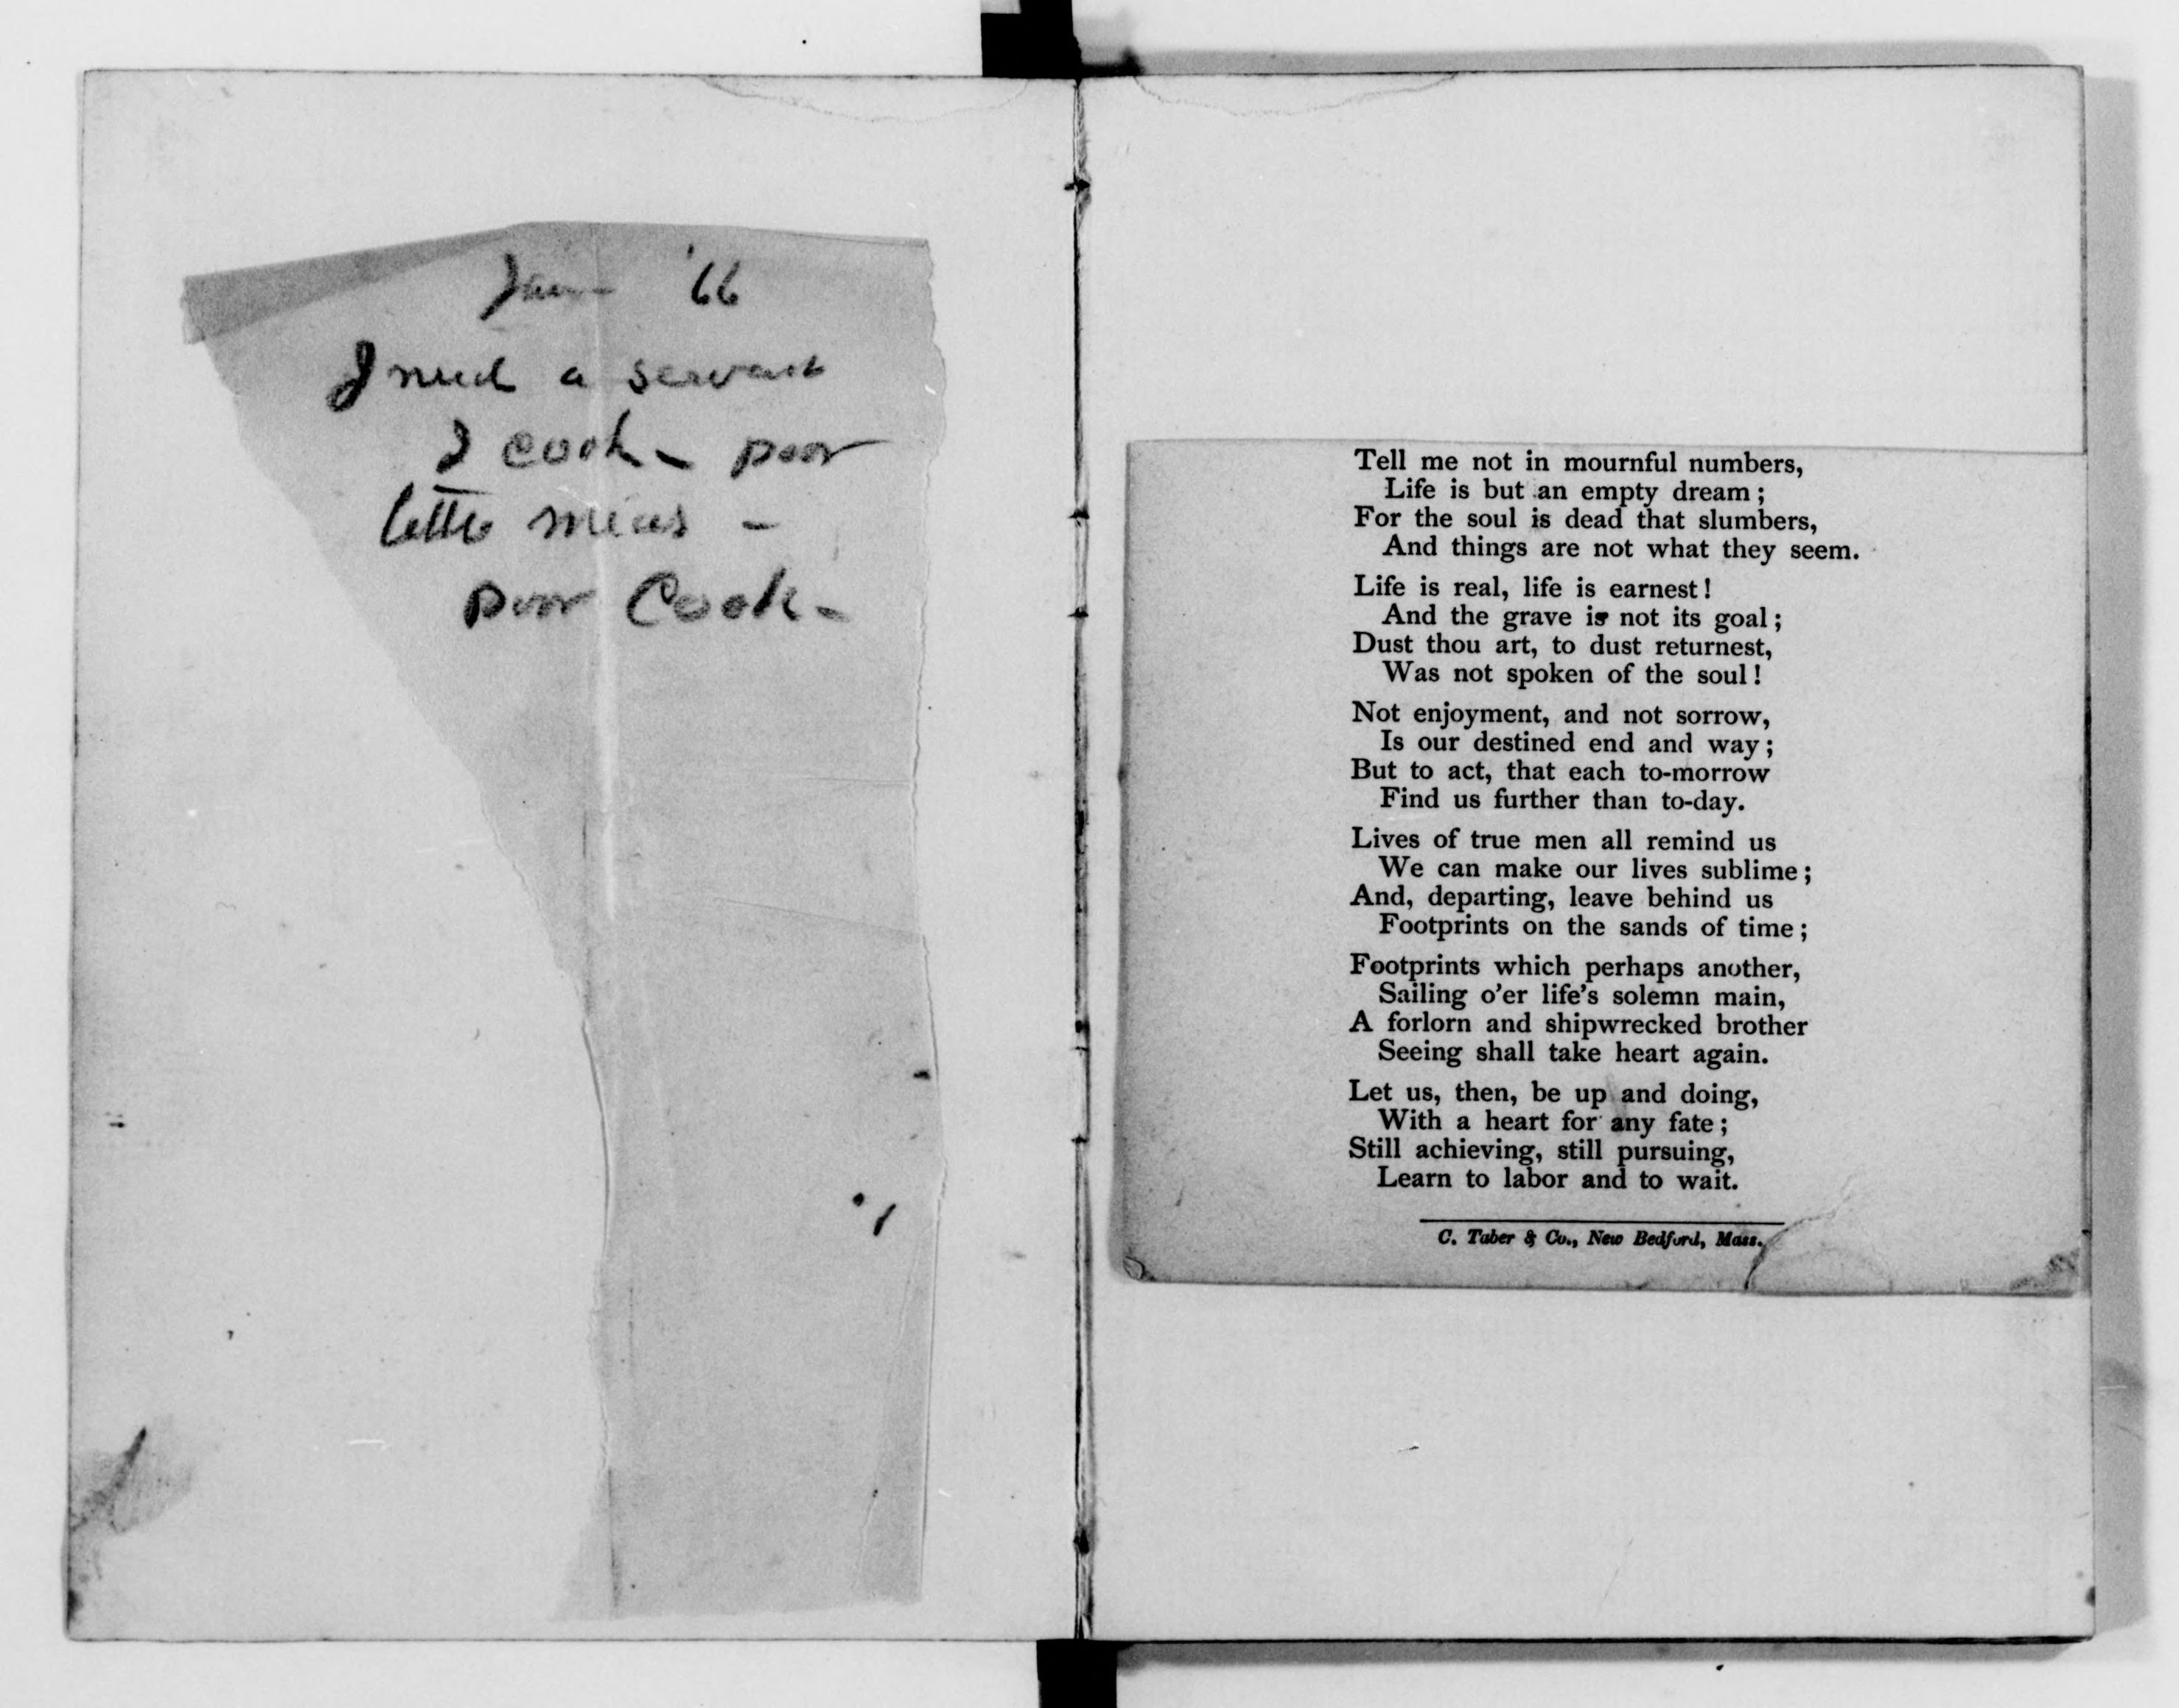 Jan - '66
I need a servant
I cook - poor
little
poor Cook -
Tell me not in mournful numbers,
Life is but an empty dream;
For the soul is dead that slumbers,
And things are not what they seem.
Life is real, life is earnest!
And the grave is not its goal;
Dust thou art, to dust returnest,
Was not spoken of the soul!
Not enjoyment, and not sorrow,
Is our destined end and way;
But to act, that each to-morrow
Find us further than to-day.
Lives of true men all remind us
We can make our lives sublime;
And, departing, leave behind us
Footprints on the sands of time;
Footprints which perhaps another,
Sailing o'er life's solemn main,
A forlorn and shipwrecked brother
Seeing shall take heart again.
Let us, then, be up and doing,
With a heart for any fate;
Still achieving, still pursuing,
Learn to labor and to wait.
C. Taber & Co., New Bedford, Mass.